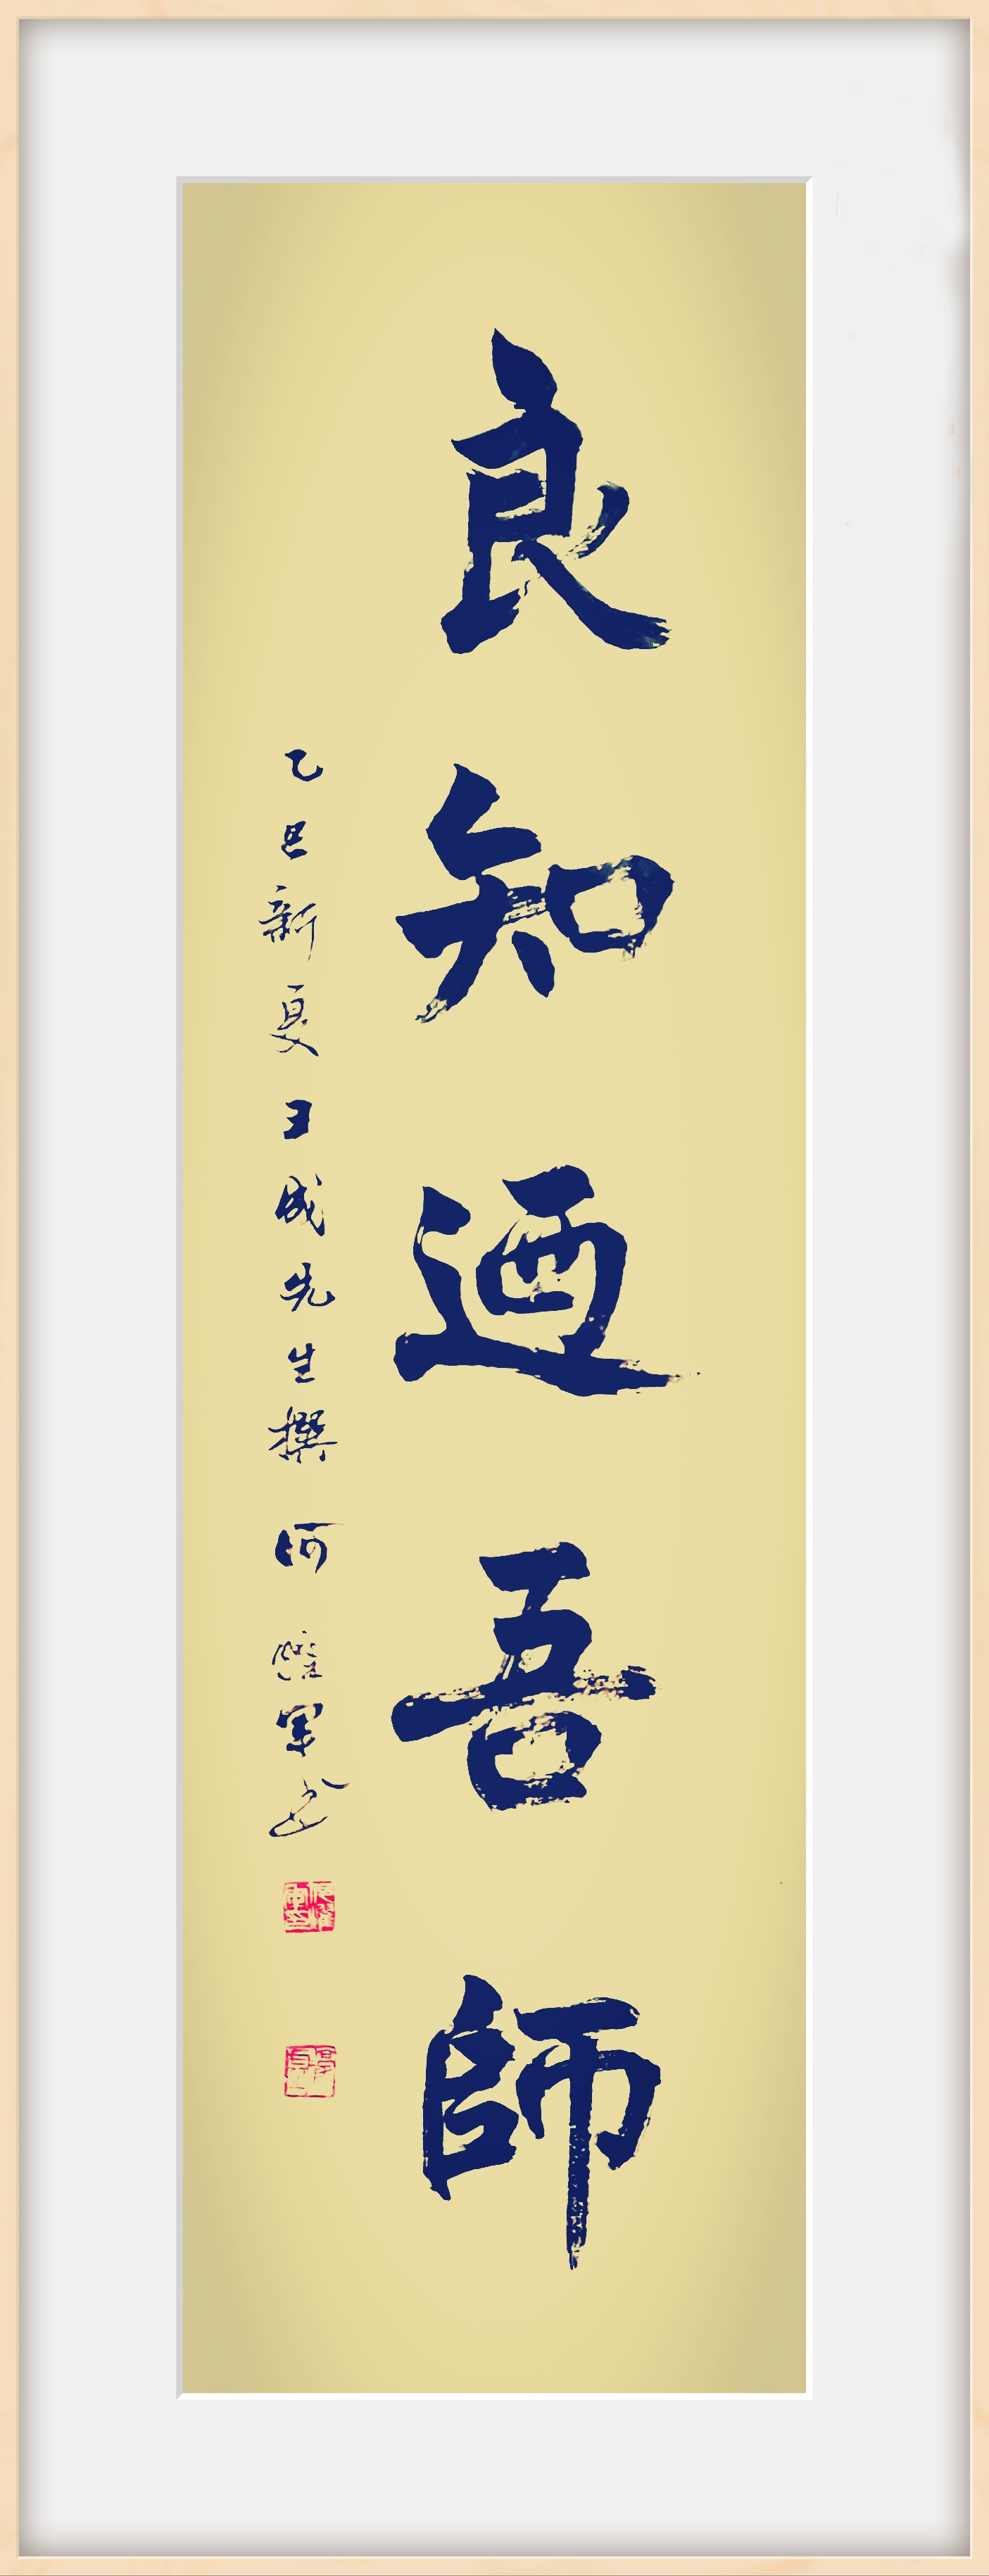 良知迺吾師
乙巳新夏王成先生撰 何 軍书